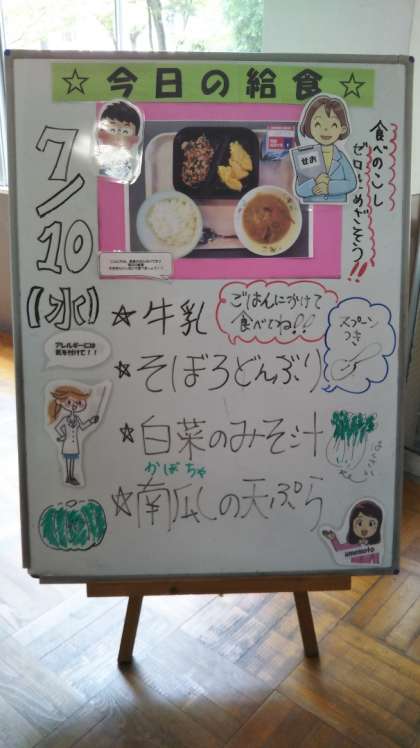 ☆今日の給食☆
7/10
(水)
食べのこし
ゼロいめざそう!!
せお
アレルギーには
気を付けて！！
☆牛乳
ごはんにかけて
食べてね!!
☆そぼろどんぶり
スプーン
つき
☆白菜のみそ汁
はくさい
かぼちゃ
☆南瓜の天ぷら
umemoto